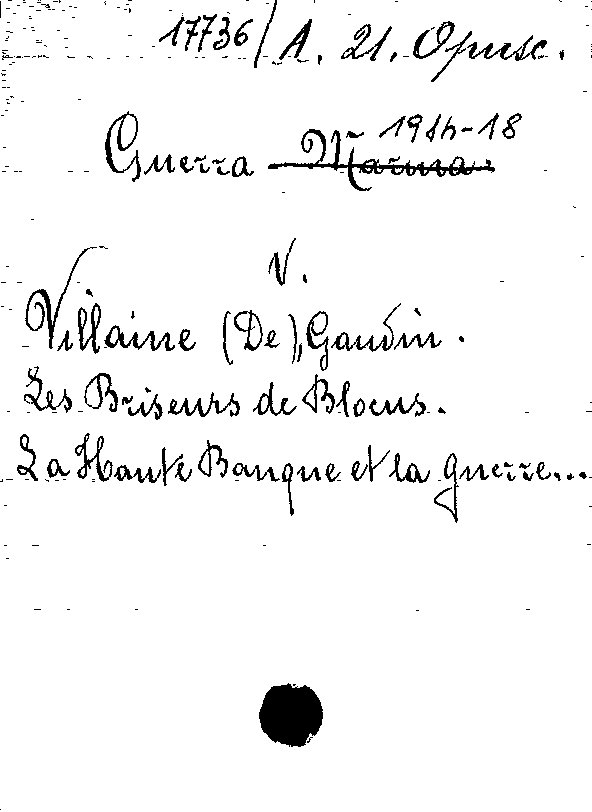 17736/A. 21. Opusc.
1914-18
Guerra Marina.
V.
Villaine (De), Gaudin.
Les Briseurs de Blocus.
La Haute Banque et la guerre...